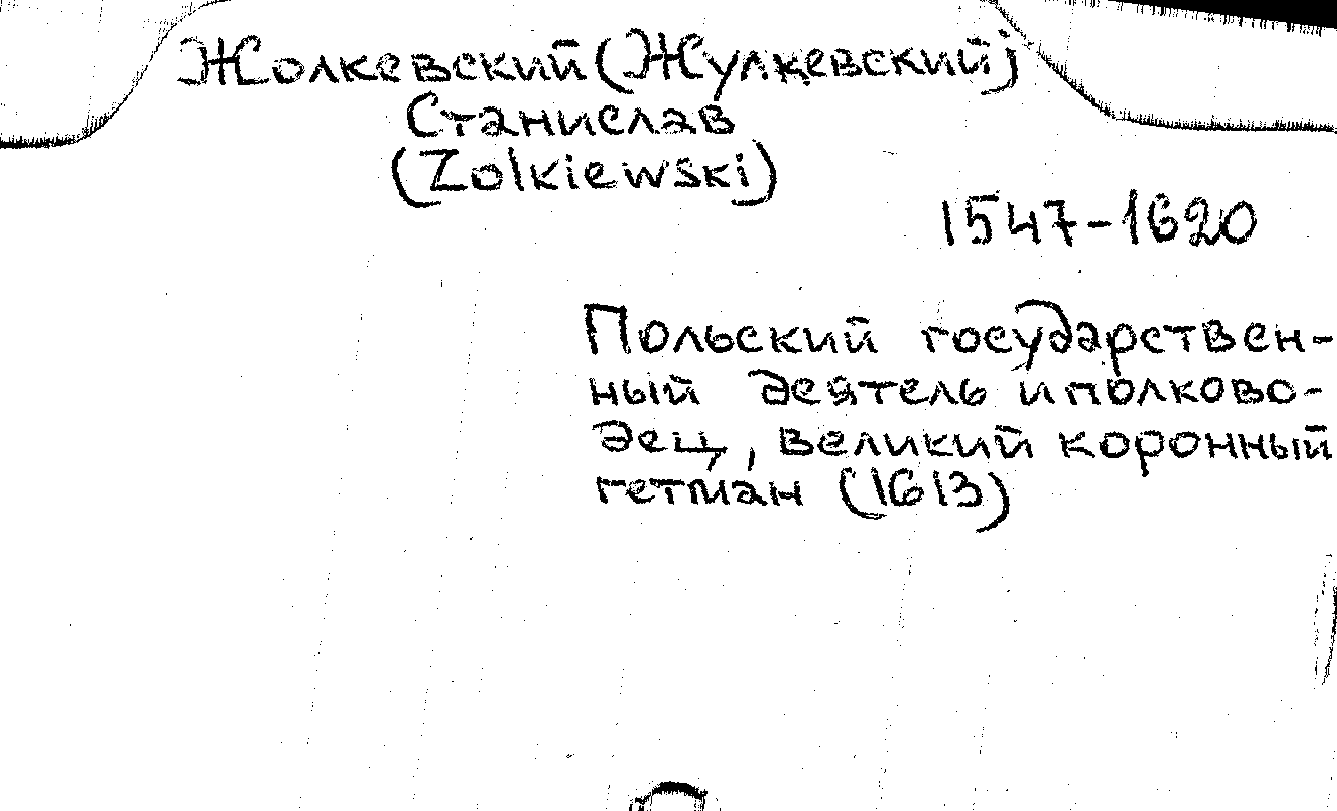 Жолкевский (Жулкевский)
Станислав
(Zolkiewski)
1547-1620
Польский государствен-
ный деятель и полково-
дец, великий коронный
гетман (1613)